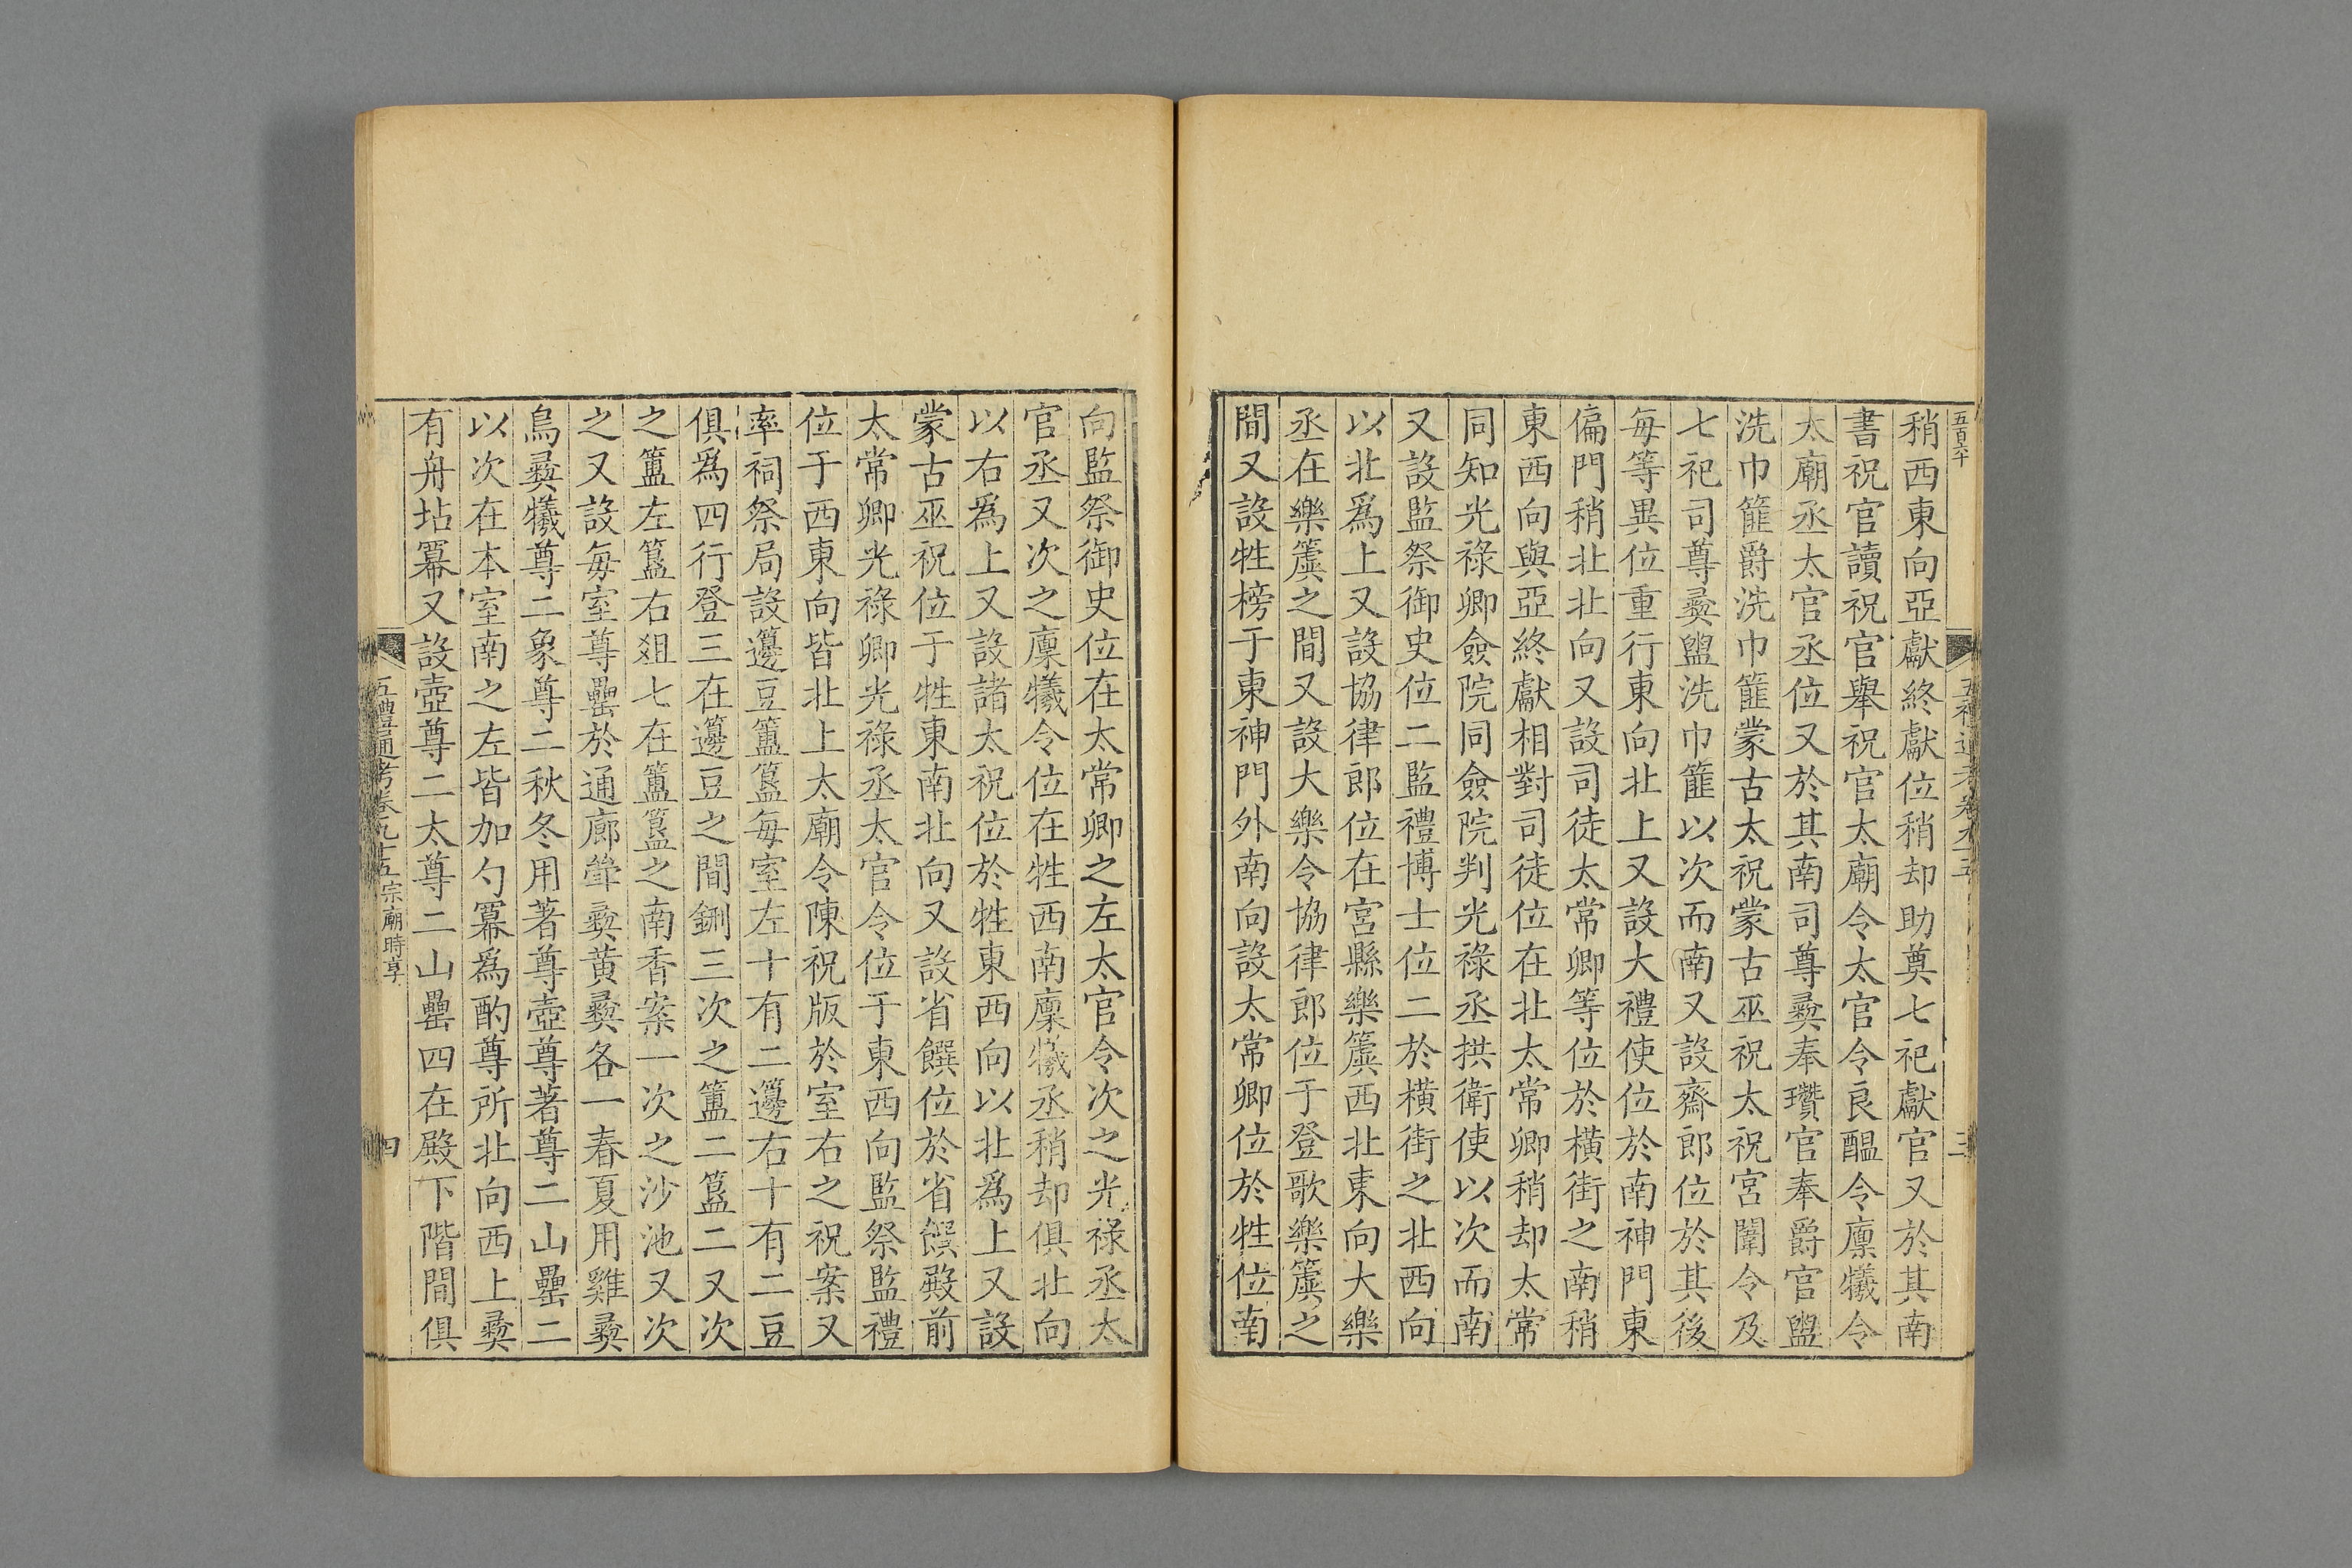 五百六十
五禮通考卷九十五
三
稍西東向亞獻終獻位稍却助奠七祀獻官又於其南
書祝官讀祝官舉祝官太廟令太官令良醖令廪犧令
太廟丞太官丞位又於其南司尊彜奉瓚官奉爵官盥
洗巾篚爵洗巾篚蒙古太祝蒙古巫祝太祝宮闈令及
七祀司尊彜盥洗巾篚以次而南又設齋郎位於其後
每等異位重行東向北上又設大禮使位於南神門東
偏門稍北北向又設司徒太常卿等位於橫街之南稍
東西向與亞終獻相對司徒位在北太常卿稍却太常
同知光祿卿僉院同僉院判光祿丞拱衛使以次而南
又設監祭御史位二監禮博士位二於橫街之北西向
以北爲上又設協律郎位在宮縣樂簴西北東向大樂
丞在樂簴之間又設大樂令協律郎位于登歌樂簴之
間又設牲榜于東神門外南向設太常卿位於牲位南
向監祭御史位在太常卿之左太官令次之光祿丞太
官丞又次之廪犧令位在牲西南廪犧丞稍却俱北向
以右爲上又設諸太祝位於牲東西向以北爲上又設
蒙古巫祝位于牲東南北向又設省饌位於省饌殿前
太常卿光祿卿光祿丞太官令位于東西向監祭監禮
位于西東向皆北上太廟令陳祝版於室右之祝案又
率祠祭局設籩豆簠簋每室左十有二籩右十有二豆
俱爲四行登三在籩豆之間鉶三次之簠二簋二又次
之簠左簋右俎七在簠簋之南香案一次之沙池又次
之又設每室尊罍於通廊斝彜黃彜各一春夏用雞彜
鳥彜犧尊二象尊二秋冬用著尊壺尊著尊二山罍二
以次在本室南之左皆加勺冪爲酌尊所北向西上彜
有舟坫冪又設壺尊二太尊二山罍四在殿下階間俱
五禮通考卷九十五宗廟時享
四